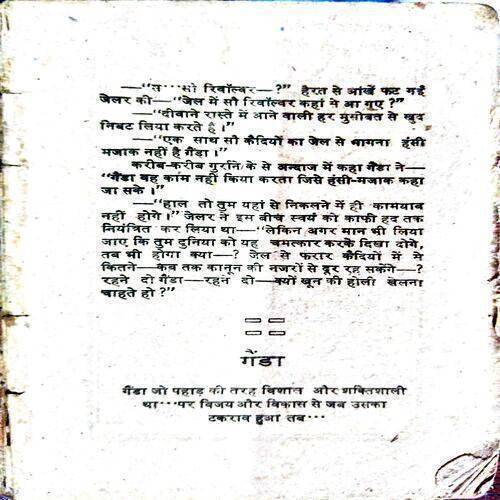 —"स...सौ रिवॉल्वर—?" हैरत से आंखें फट गईं
जेलर की—"जेल में सौ रिवॉल्वर कहां से आ गए ?"
—"दीवाने रास्ते में आने वाली हर मुसीबत से खुद
निबट लिया करते हैं ।"
—"एक साथ सौ कैदियों का जेल से भागना हंसी
मजाक नहीं है गैंडा ।"
करीब-करीब गुर्राने के से अन्दाज में कहा गैंडा ने—
"गैंडा वह काम नहीं किया करता जिसे हंसी-मजाक कहा
जा सके ।"
—"हाल तो तुम यहां से निकलने में ही कामयाब
नहीं होगे ।" जेलर ने इस बीच स्वयं को काफी हद तक
नियंत्रित कर लिया था—"लेकिन अगर मान भी लिया
जाए कि तुम दुनिया को यह चमत्कार करके दिखा दोगे,
तब भी होगा क्या—? जेल से फरार कैदियों में से
कितने—कब तक कानून की नजरों से दूर रह सकेंगे—?
रहने दो गैंडा—रहन दो—क्यों खून की होली खेलना
चाहते हो ?"
गैंडा
गैंडा जो पहाड़ की तरह विशाल और शक्तिशाली
था...पर विजय और विकास से जब उसका
टकराव हुआ तब...